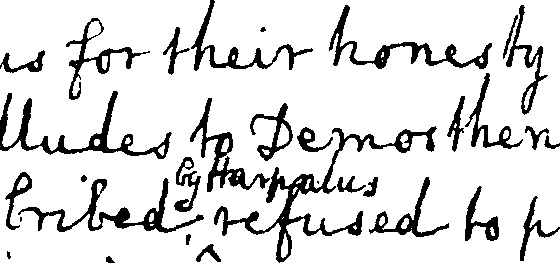 us for their honesty
lludes to Demosthen
by Harpalus
bribed, refused to p